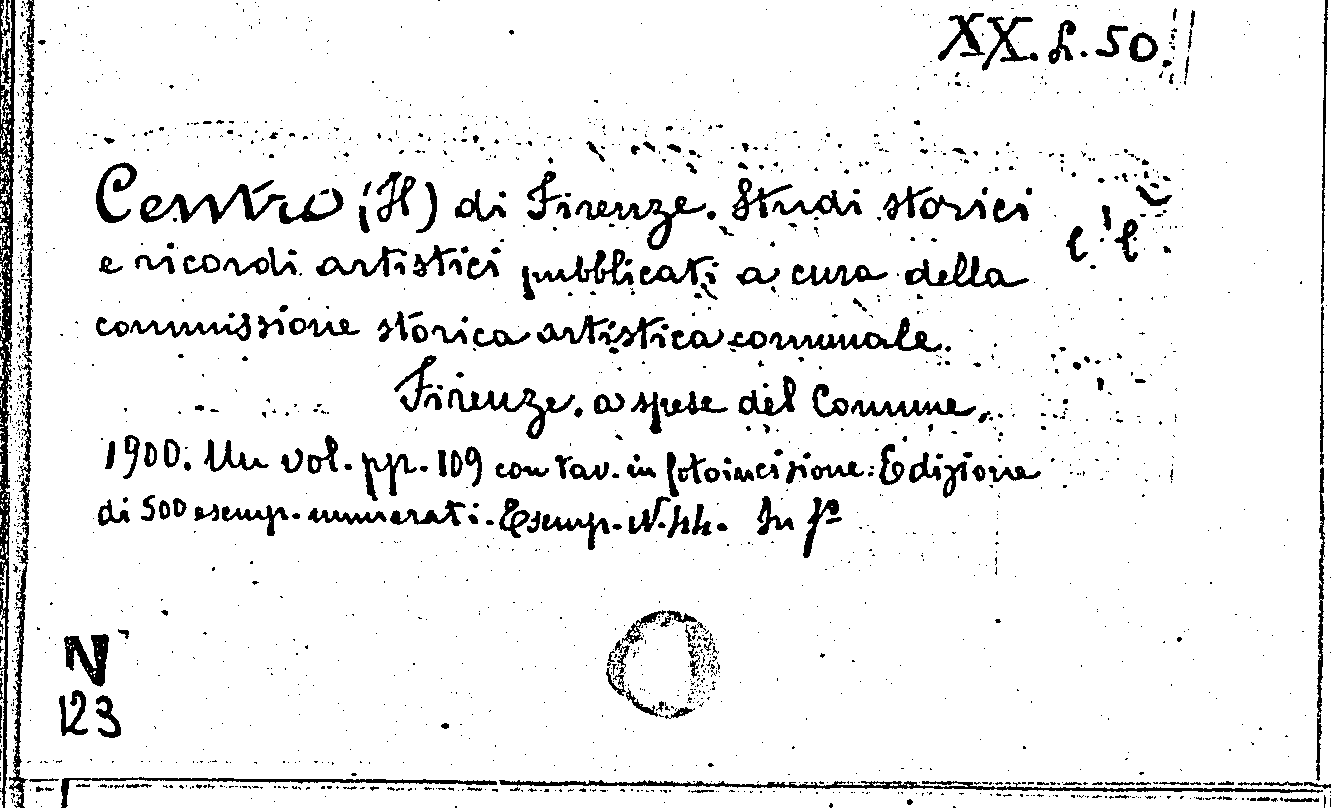 XX. L. 50.
Centro (Il) di Firenze. Studi storici
c'è
e ricordi artistici pubblicati a cura della
commissione storica artistica comunale.
Firenze. a spese del Comune.
1900. Un vol. pp. 109 con tav. in fotoincisione. Edizione
di 500 esemp. numerati. Esemp. N. 44. In fº
N
123